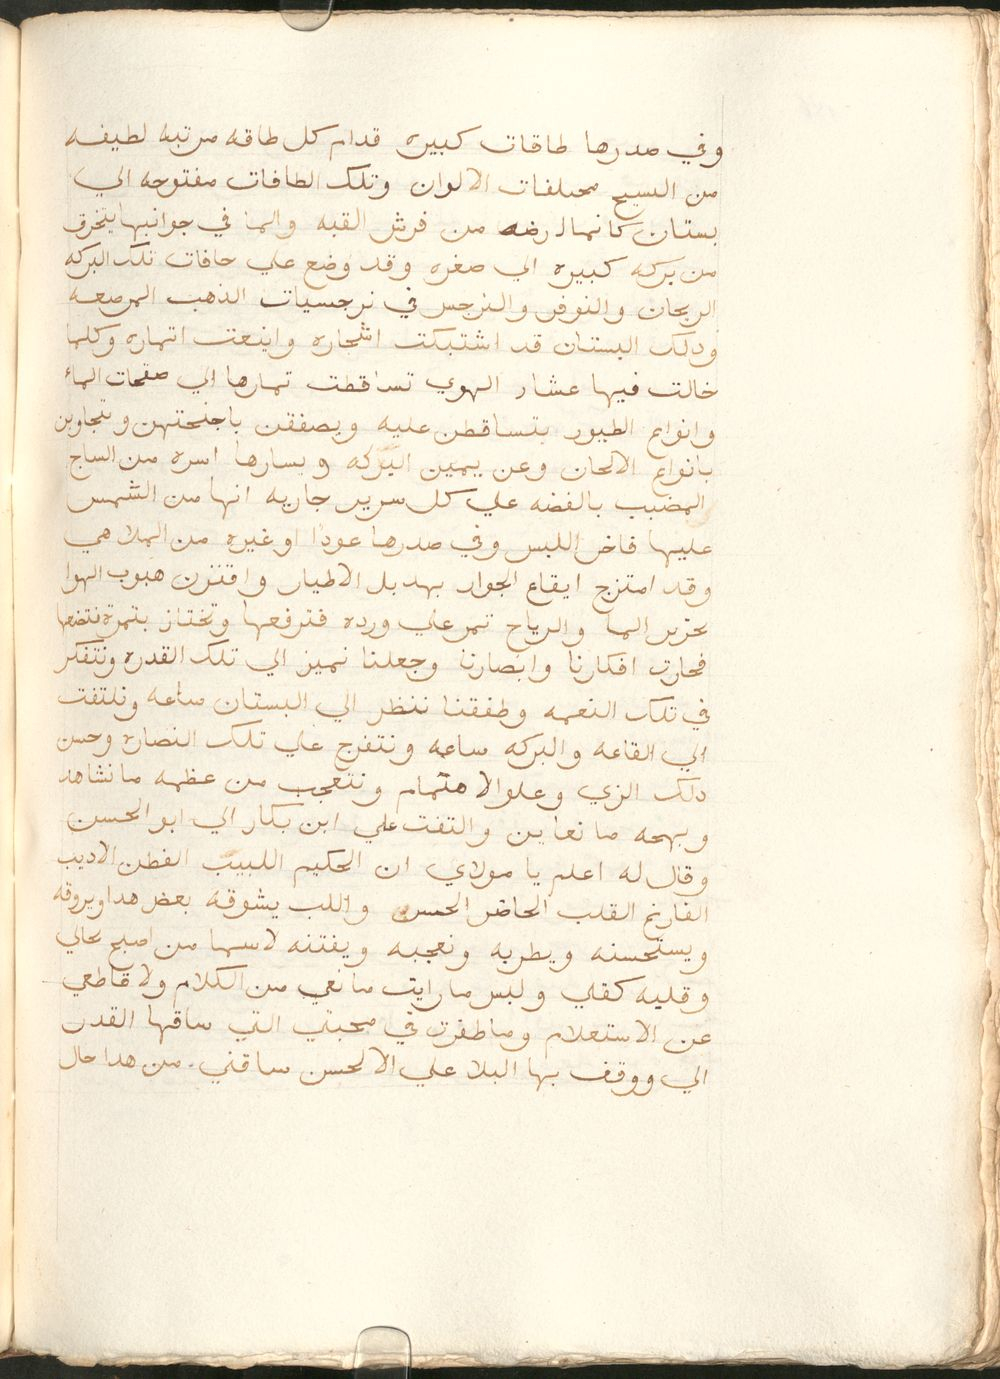 وفي صدرها طاقات كبيره قدام كل طاقه مرتبه لطيفه
من النسيج مختلفات الالوان وتلك الطاقات مفتوحه الي
بستان كانما ارضه من فرش القبه والما في جوانبها ينخرق
من بركه كبيره الي صغره وقد وضع علي حافات تلك البركه
الريحان والنوفر والنرجس في نرجسيات الذهب المرصعه
ودلك البستان قد اشتبكت اشجاره واينعت اتماره وكلما
خالت فيها عشار الهوي تساقطت تمارها الي صفحات الماء
وانواع الطيور بتساقطن عليه ويصفقن باجنحتهن ويتجاوبن
بانواع الالحان وعن يمين البركه ويسارها اسره من الساج
المضبب بالفضه علي كل سرير جاريه انها من الشمس
عليها فاخر اللبس وفي صدرها عودًا او غيره من الملاهي
وقد امتزج ايقاع الجوار بهديل الاطيار واقتزن هبوب الهوا
بخرير الما والرياح تمر علي ورده فترفعها وتختاز بتمرة فتضعها
فحارت افكارنا وابصارنا وجعلنا نميز الي تلك القدره ونتفكر
في تلك النعمه وطفقنا ننظر الي البستان ساعه ونلتفت
الي القاعه والبركه ساعه ونتفرج علي تلك النصاره وحسن
دلك الزي وعلو الاهتمام ونتعجب من عظمه ما نشاهد
وبهجه ما نعاين والتفت علي ابن بكار الي ابو الحسن
وقال له اعلم يا مولاي ان الحكيم اللبيب الفطن الاديب
الفارغ القلب الحاضر الحسن واللب يشوقه بعض هدا ويروقه
ويستحسنه ويطربه ونعجبه ويفتنه لاسيما من اصبح بحالي
وقلبه كقلبي وليس ما رايت مانعي من الكلام ولا قاطعي
عن الاستعلام وما طفرت في محبتي التي ساقها القدر
الي ووقف بها البلا علي الا لحسن ساقني من هدا حال